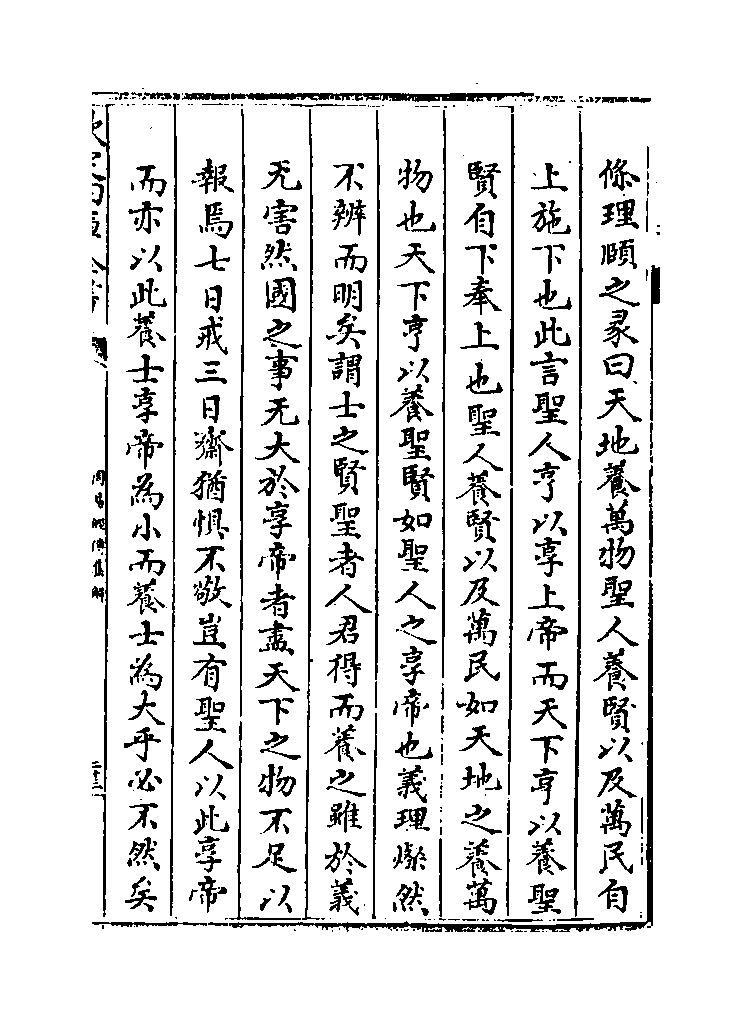 條理頤之彖曰天地養萬物聖人養賢以及萬民自
上施下也此言聖人亨以享上帝而天下亨以養聖
賢自下奉上也聖人養賢以及萬民如天地之養萬
物也天下亨以養聖賢如聖人之享帝也義理燦然
不辨而明矣謂士之賢聖者人君得而養之雖於義
无害然國之事无大於享帝者盡天下之物不足以
報焉七日戒三日齋猶懼不敬豈有聖人以此享帝
而亦以此養士享帝為小而養士為大乎必不然矣
欽定四庫全書
周易經傳集解